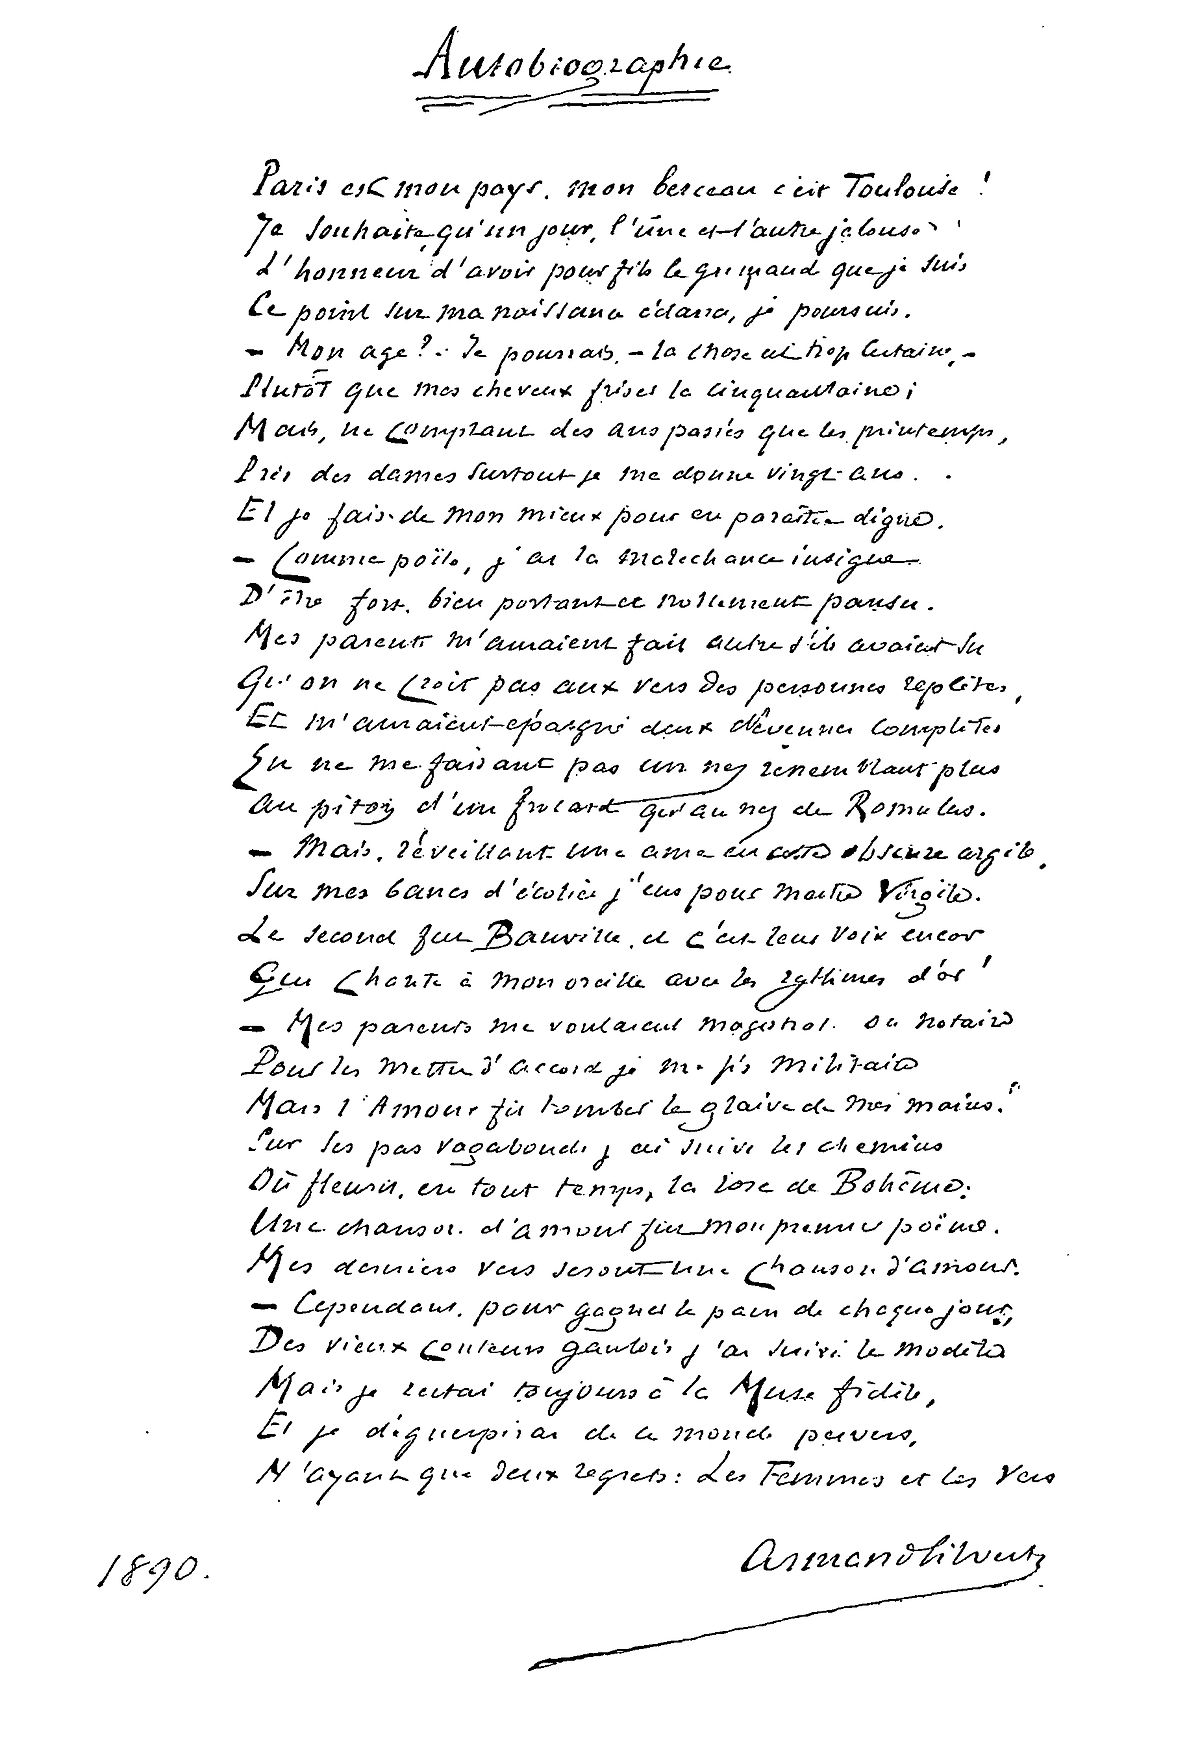 Autobiographie
Paris est mon pays. mon berceau c'est Toulouse !
Je souhaite, qu'un jour, l'une et l'autre jalouse
L'honneur d'avoir pour fils le grimaud que je suis
Ce point sur ma naissance éclairci, je poursuis.
– Mon age ? – Je pourrais, – la chose est trop certaine, –
Plutôt que mes cheveux friser la cinquantaine ;
Mais, ne comptant des ans passés que les printemps,
Près des dames surtout je me donne vingt ans.
Et je fais de mon mieux pour en paraître digne.
– Comme poëte, j'ai la malechance insigne
D'être fort, bien portant et nullement pansu.
Mes parents m'auraient fait autre s'ils avaient su
Qu'on ne croit pas aux vers des personnes replètes,
Et m'auraient épargné deux déveines complètes
En ne me faisant pas un nez ressemblant plus
au piton d'un frocard qu'au nez de Romulus.
– Mais, réveillant une ame en cette obscure argile,
Sur mes bancs d'écolier j'eus pour maître Virgile.
Le second fut Banville, et c'est leur voix encor
Qui chante à mon oreille avec les rythmes d'or !
– Mes parents me voulaient magistrat ou notaire
Pour les mettre d'accord je me fis militaire
Mais l'Amour fit tomber le glaive de mes mains.
Sur ses pas vagabonds j'ai suivi les chemins
Où fleurit, en tout temps, la rose de Bohême ;
Une chanson d'amour fut mon premier poëme.
Mes derniers vers seront une chanson d'amour.
– Cependant, pour gagner le pain de chaque jour,
Des vieux conteurs gaulois j'ai suivi le modèle
Mais je restai toujours à la Muse fidèle,
Et je déguerpirai de ce monde pervers,
N'ayant que deux regrets : Les Femmes et les Vers
Armand Silvestre
1890.